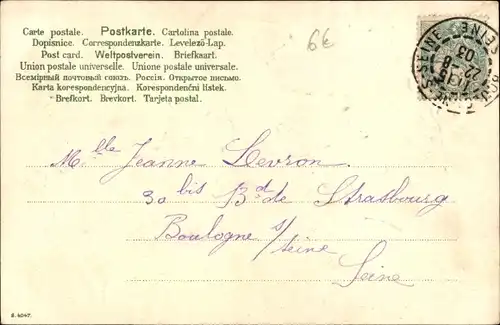 Carte postale. Postkarte. Cartolina postale.
Dopisnice. Correspondenzkarte. Levelező-Lap.
Post card. Weltpostverein. Briefkaart.
Union postale universelle. Unione postale universale.
Всемірный почтовый союзъ. Россія. Открытое письмо.
Karta korespondencyjna. Korespondenční lístek.
Brefkort. Brevkort. Tarjeta postal.
6€
SEINE
Mlle Jeanne Devron
30 bis Bd de Strasbourg
Boulogne s/
seine
Seine
S. 4047.